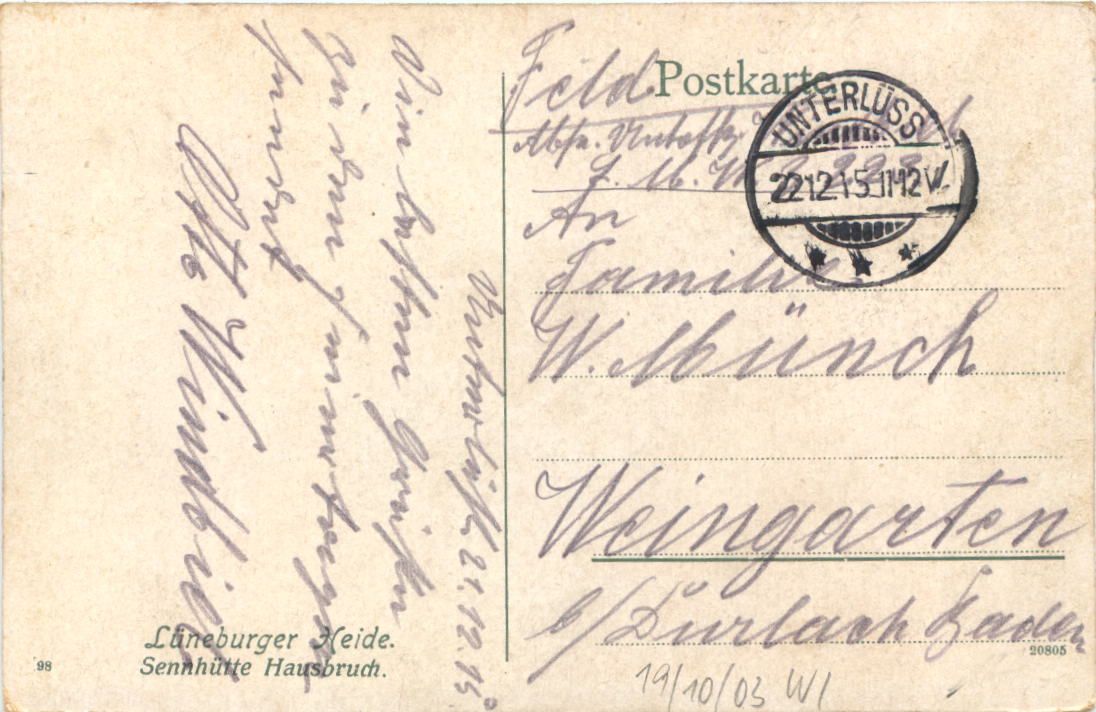 Unterlüß. 21.12.15
Die besten Grüße
zu den Feiertagen
sendet
Otto Windbiel
Lüneburger Heide.
Sennhütte Hausbruch.
98
Feld Postkarte
Abs. Untoffz.
An
Familie
W. Münch
Weingarten
b/Durlach Baden
20805
19/10/03 W/
UNTERLÜSS
22.12.15.11-12V.